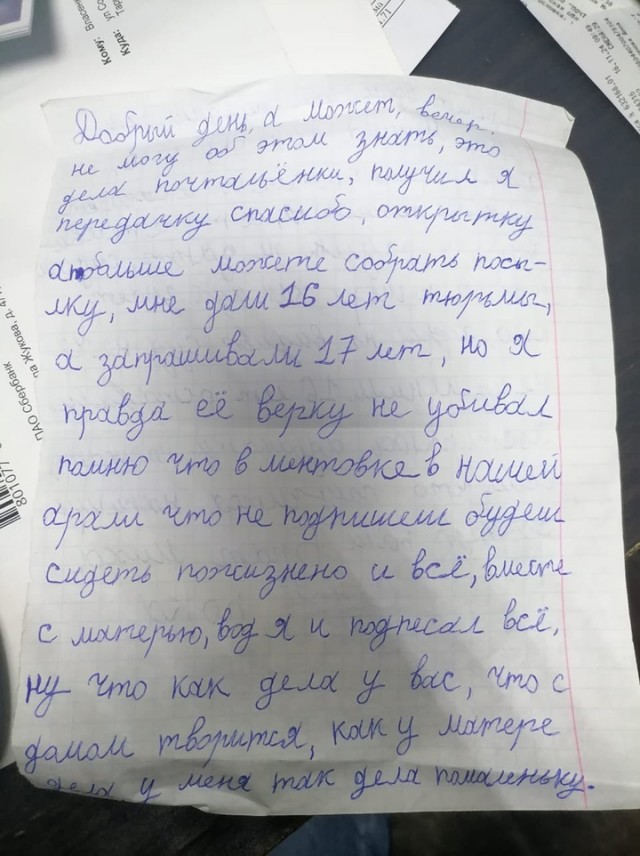 Кому:
Куда:
ПАО Сбербанк
801077
16.11.24
Добрый день, а может, вечер.
не могу об этом знать, это
дела почтальёнки, получил я
передачку спасиоб, открытку
а больше можете собрать посы-
лку, мне дали 16 лет тюрьмы,
а запрашивали 17 лет, но я
правда её верку не убивал
помню что в ментовке в нашей
арали что не подпишеш будеш
сидеть пожизнено и всё, вместе
с матерью, вод я и подпесал всё,
ну что как дела у вас, что с
домом творится, как у матере
дела, у меня так дела помаленьку.